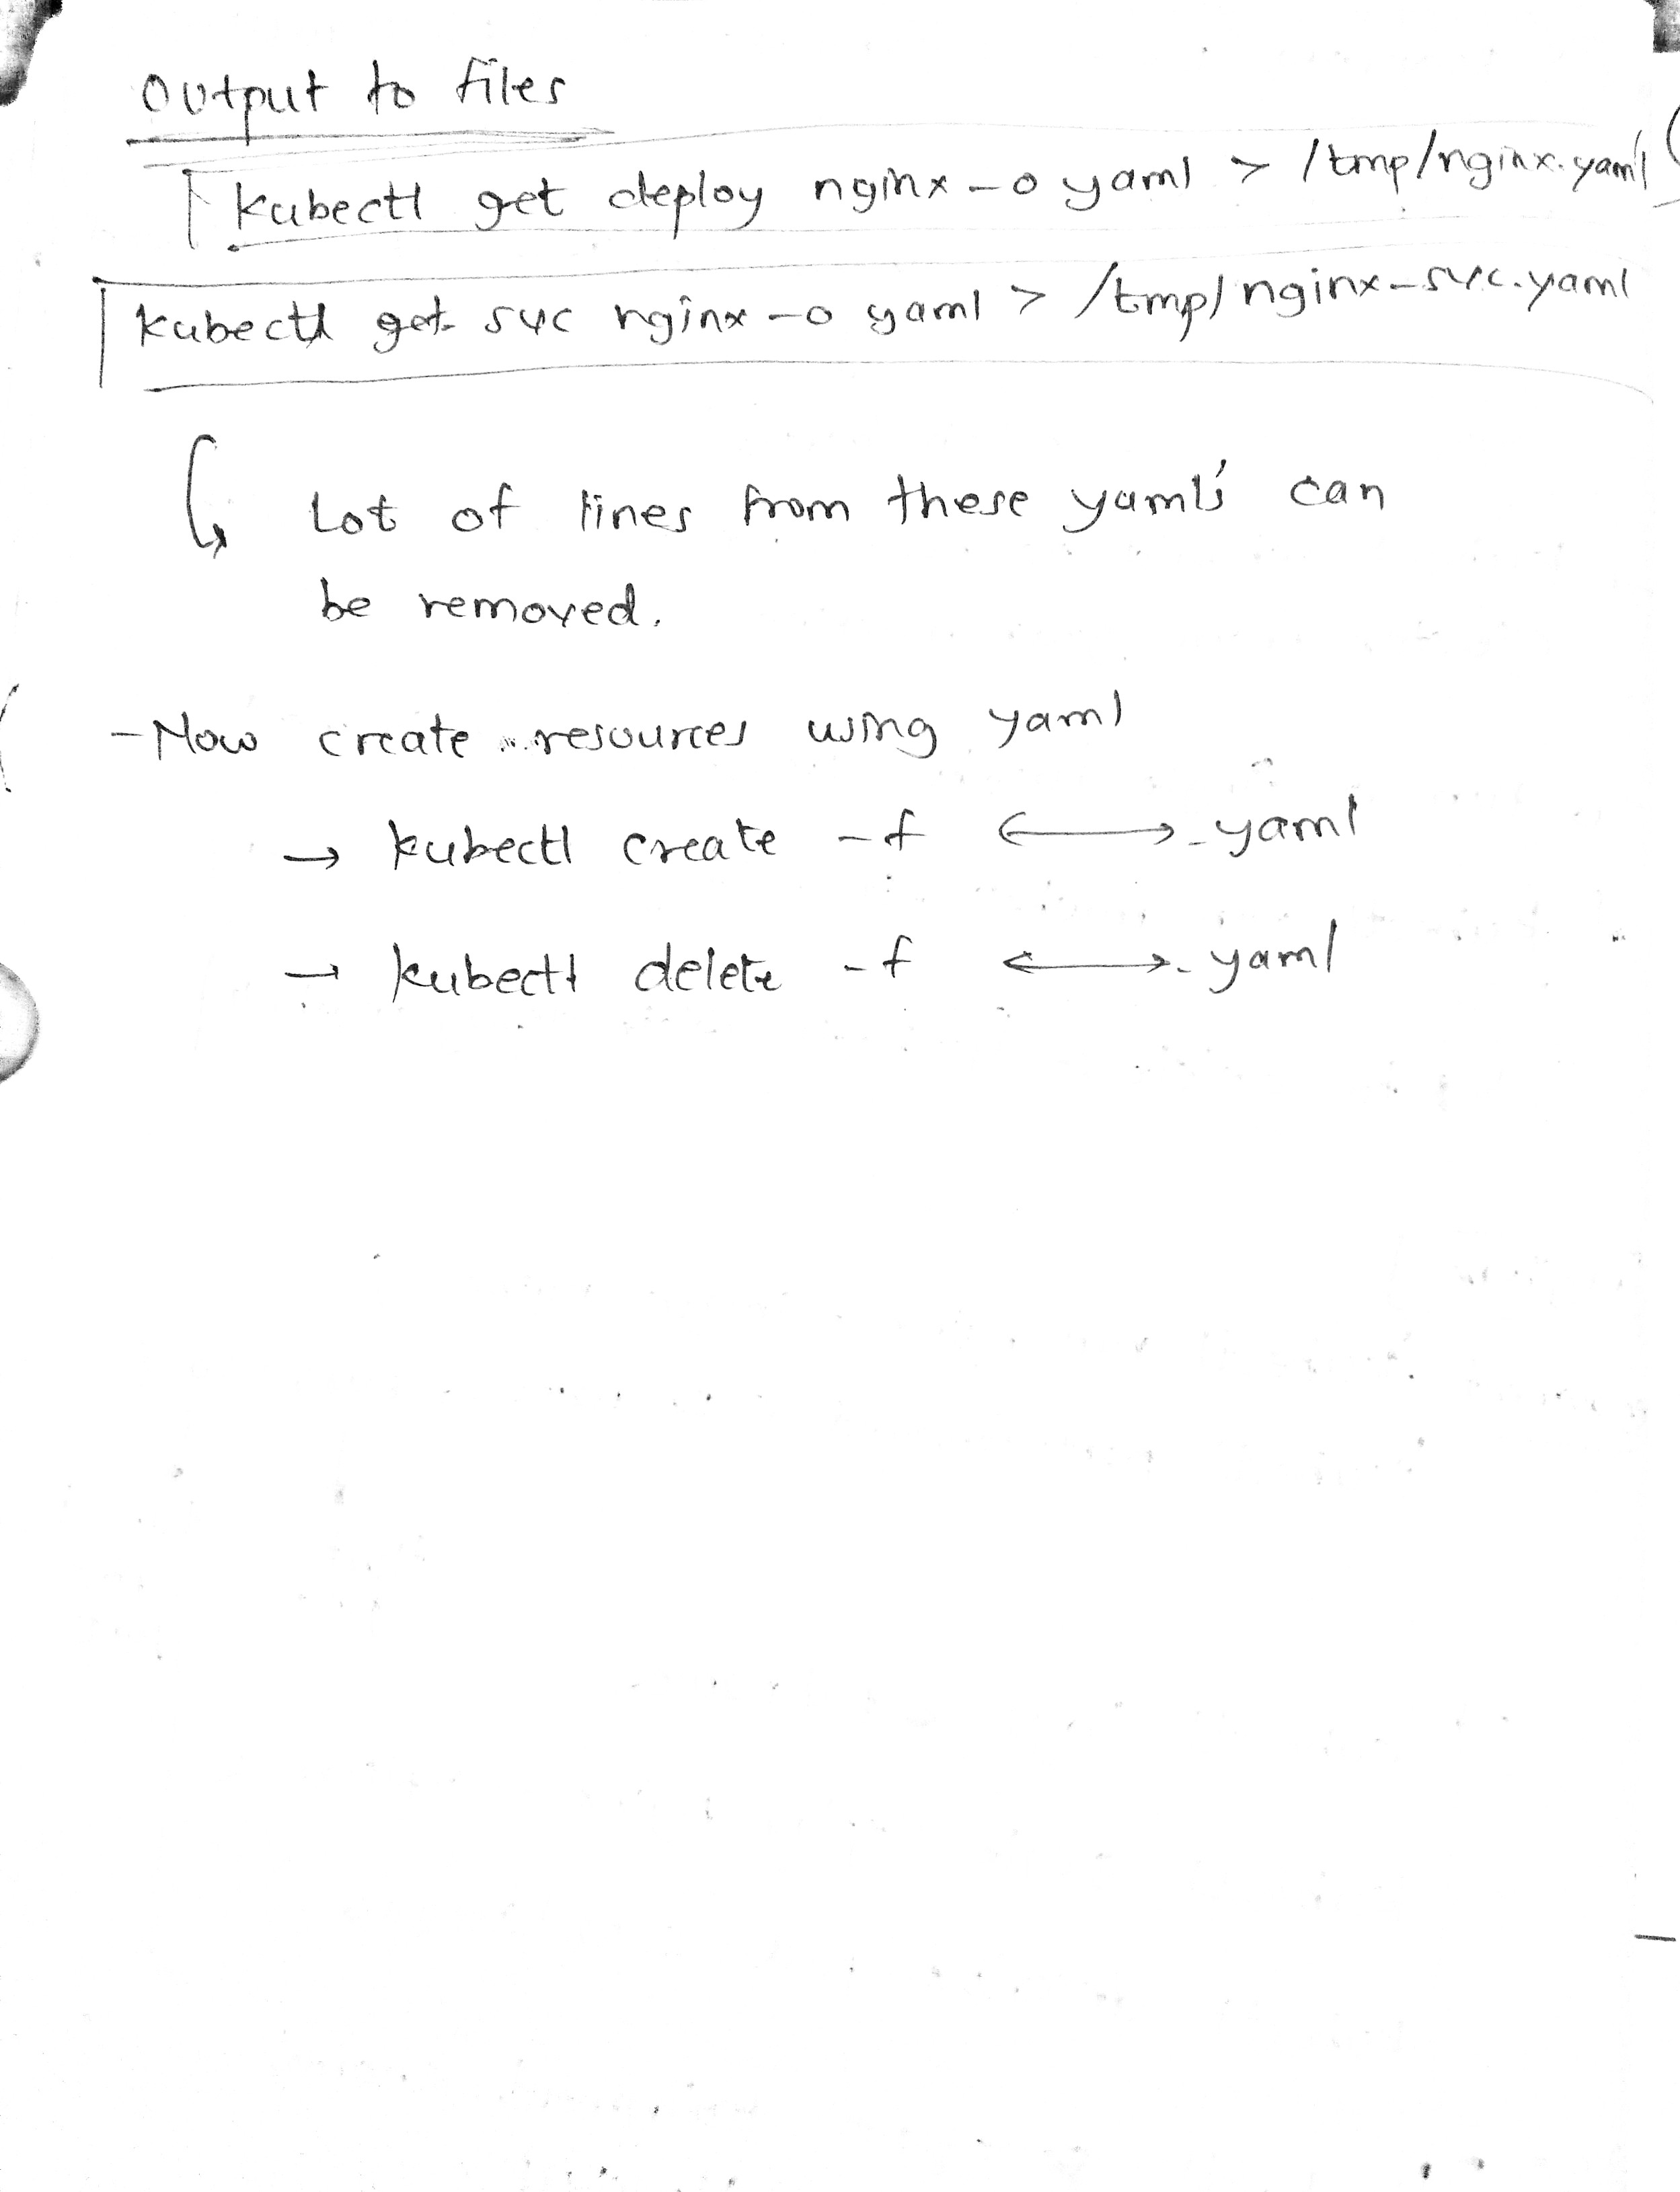 Output to files
kubectl get deploy nginx -o yaml > /tmp/nginx.yaml
kubectl get svc nginx -o yaml > /tmp/nginx-svc.yaml
Lot of lines from these yaml's can
be removed.
- Now create resources using yaml
→ kubectl create -f <——>.yaml
→ kubectl delete -f <——>.yaml